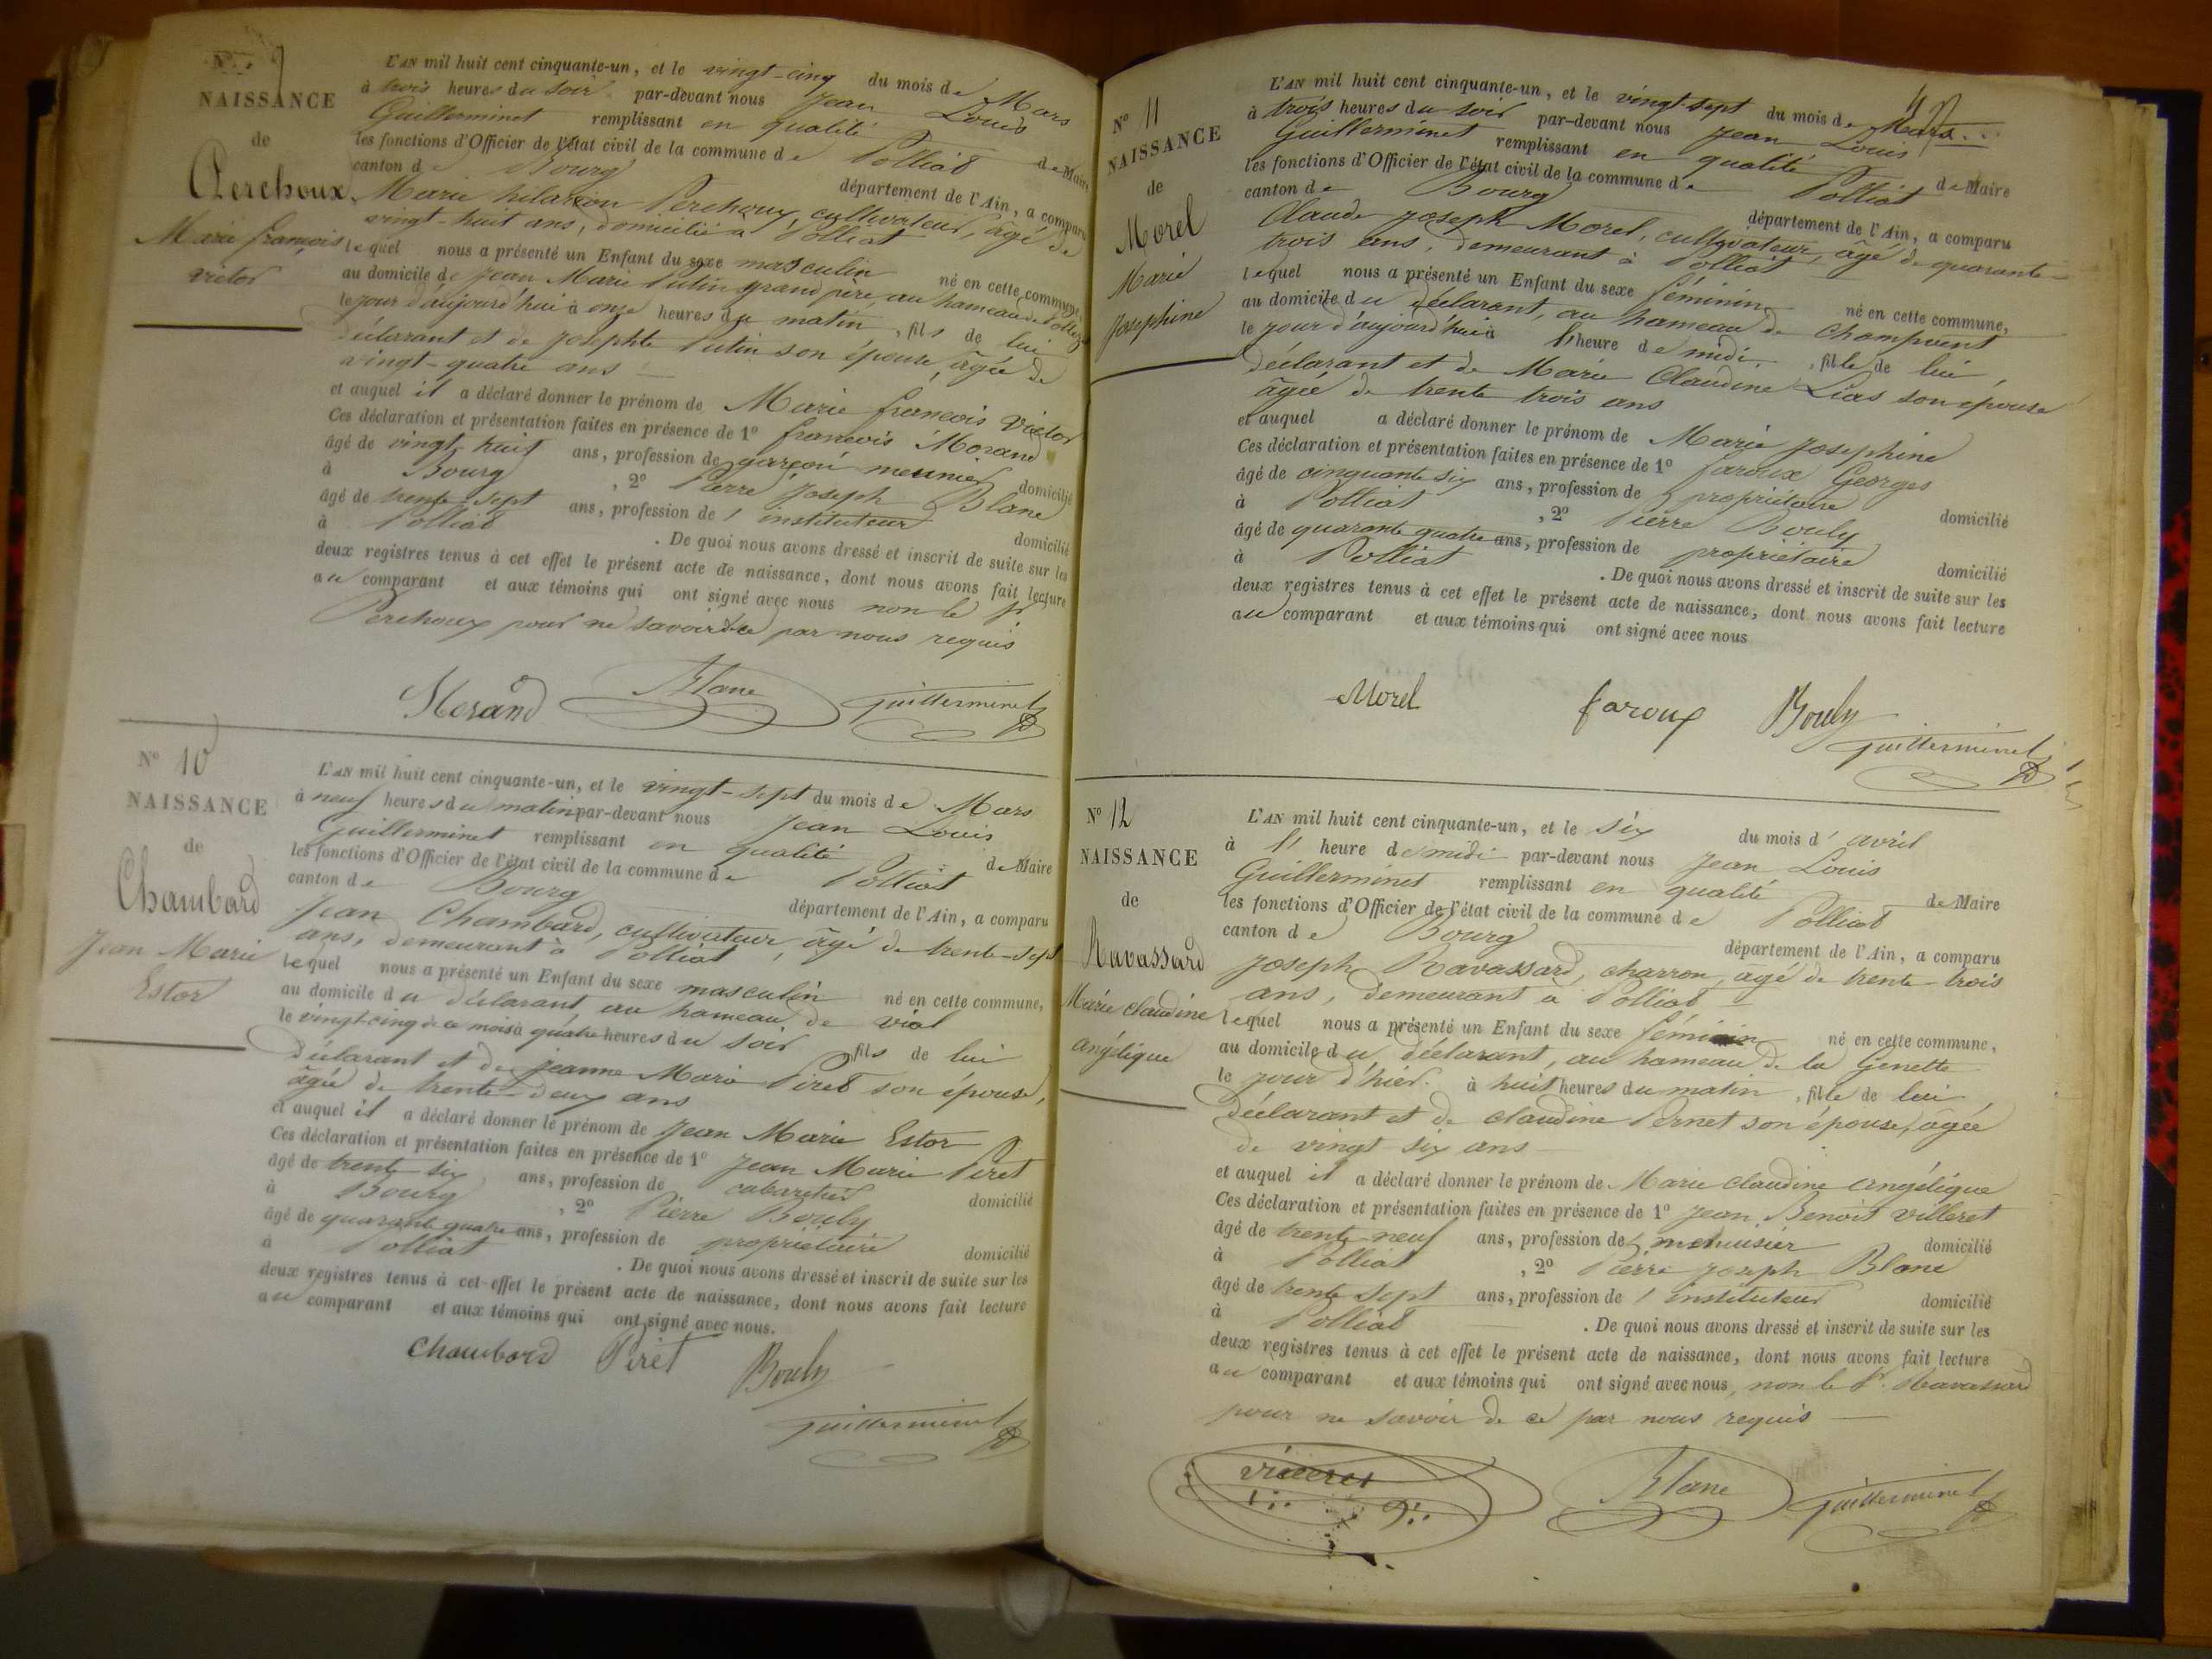 N° 9
NAISSANCE
de
Perchoux
Marie françois
victor
L'AN mil huit cent cinquante-un, et le vingt-cinq du mois de Mars
à trois heures du soir par-devant nous Jean Louis
Guillerminet remplissant en qualité de Maire
les fonctions d'Officier de l'état civil de la commune de Polliat
canton de Bourg département de l'Ain, a comparu
Marie hilarion Perchoux, cultivateur, âgé de
vingt-huit ans, domicilié à Polliat
lequel nous a présenté un Enfant du sexe masculin né en cette commune,
au domicile de Jean Marie Putin grand père, au hameau de
le jour d'aujourd'hui à onze heures du matin, fils de lui
déclarant et de Josephte Putin son épouse, âgée de
vingt-quatre ans
et auquel il a déclaré donner le prénom de Marie françois Victor
Ces déclaration et présentation faites en présence de 1° françois Morand
âgé de vingt-huit ans, profession de garçon meunier domicilié
à Bourg, 2° Pierre Joseph Blanc
âgé de trente-sept ans, profession de instituteur domicilié
à Polliat. De quoi nous avons dressé et inscrit de suite sur les
deux registres tenus à cet effet le présent acte de naissance, dont nous avons fait lecture
au comparant et aux témoins qui ont signé avec nous non le sr
Perchoux pour ne savoir de ce par nous requis
Morand Blanc Guillerminet
N° 10
NAISSANCE
de
Chambard
Jean Marie
Estor
L'AN mil huit cent cinquante-un, et le vingt-sept du mois de Mars
à neuf heures du matin par-devant nous Jean Louis
Guillerminet remplissant en qualité de Maire
les fonctions d'Officier de l'état civil de la commune de Polliat
canton de Bourg département de l'Ain, a comparu
Jean Chambard, cultivateur, âgé de trente-sept
ans, demeurant à Polliat,
lequel nous a présenté un Enfant du sexe masculin né en cette commune,
au domicile du déclarant, au hameau de vial
le vingt-cinq de ce mois à quatre heures du soir fils de lui
déclarant et de Jeanne Marie Piret son épouse,
âgée de trente-deux ans
et auquel il a déclaré donner le prénom de Jean Marie Estor
Ces déclaration et présentation faites en présence de 1° Jean Marie Piret
âgé de trente six ans, profession de cabaretier domicilié
à Bourg, 2° Pierre Bouly
âgé de quarante quatre ans, profession de propriétaire domicilié
à Polliat. De quoi nous avons dressé et inscrit de suite sur les
deux registres tenus à cet effet le présent acte de naissance, dont nous avons fait lecture
au comparant et aux témoins qui ont signé avec nous.
Chambard Piret Bouly
Guillerminet
N° 11
NAISSANCE
de
Morel
Marie
Josephine
L'AN mil huit cent cinquante-un, et le vingt-sept du mois de Mars
à trois heures du soir par-devant nous Jean Louis
Guillerminet remplissant en qualité de Maire
les fonctions d'Officier de l'état civil de la commune de Polliat
canton de Bourg département de l'Ain, a comparu
Claude Joseph Morel, cultivateur, âgé de quarante-
trois ans, demeurant à Polliat
lequel nous a présenté un Enfant du sexe féminin né en cette commune,
au domicile du déclarant, au hameau de Champvent
le jour d'aujourd'hui à l'heure de midi, fille de lui,
déclarant et de Marie Claudine Lias son épouse
âgée de trente trois ans
et auquel a déclaré donner le prénom de Marie Josephine
Ces déclaration et présentation faites en présence de 1° faroux Georges
âgé de cinquante six ans, profession de propriétaire domicilié
à Polliat, 2° Pierre Bouly
âgé de quarante quatre ans, profession de propriétaire domicilié
à Polliat. De quoi nous avons dressé et inscrit de suite sur les
deux registres tenus à cet effet le présent acte de naissance, dont nous avons fait lecture
au comparant et aux témoins qui ont signé avec nous
Morel faroux Bouly
Guillerminet
N° 12
NAISSANCE
de
Ravassard
Marie claudine
angélique
L'AN mil huit cent cinquante-un, et le six du mois d'avril
à l'heure de midi par-devant nous Jean Louis
Guillerminet remplissant en qualité de Maire
les fonctions d'Officier de l'état civil de la commune de Polliat
canton de Bourg département de l'Ain, a comparu
Joseph Ravassard, charron, âgé de trente-trois
ans, demeurant à Polliat
lequel nous a présenté un Enfant du sexe féminin né en cette commune,
au domicile du déclarant, au hameau de la Genette
le jour d'hier à huit heures du matin, fille de lui,
déclarant et de claudine Pernet son épouse, âgée
de vingt six ans
et auquel il a déclaré donner le prénom de Marie claudine angélique
Ces déclaration et présentation faites en présence de 1° Jean Benoit Villeret
âgé de trente neuf ans, profession de menuisier domicilié
à Polliat, 2° Pierre Joseph Blanc
âgé de trente sept ans, profession de instituteur domicilié
à Polliat. De quoi nous avons dressé et inscrit de suite sur les
deux registres tenus à cet effet le présent acte de naissance, dont nous avons fait lecture
au comparant et aux témoins qui ont signé avec nous, non le sr. Ravassard
pour ne savoir de ce par nous requis
villeret Blanc Guillerminet